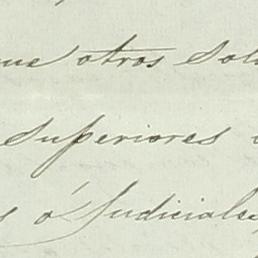 otros
superiores
ó Judiciales